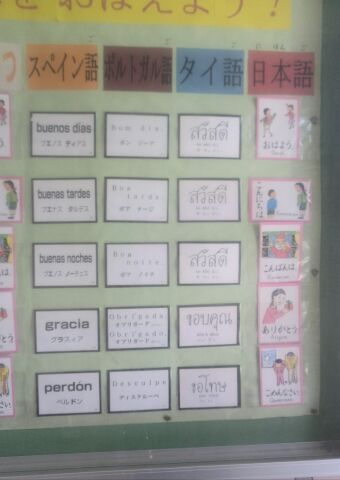 をおぼえよう！
つ
スペイン語
ポルトガル語
タイ語
日本語
buenos días
ブエノス ディアス
Bom dia.
ボン ジーア
สวัสดี
おはよう
buenas tardes
ブエナス タルデス
Boa
tarde.
ボア タージ
สวัสดี
こんにちは
buenas noches
ブエナス ノーチェス
Boa
noite.
ボア ノイチ
สวัสดี
こんばんは
gracia
グラスィア
Obrigado.
オブリガード
Obrigada.
オブリガーダ
ขอบคุณ
ありがとう
perdón
ペルドン
Desculpe
ディスクルーペ
ขอโทษ
ごめんなさい